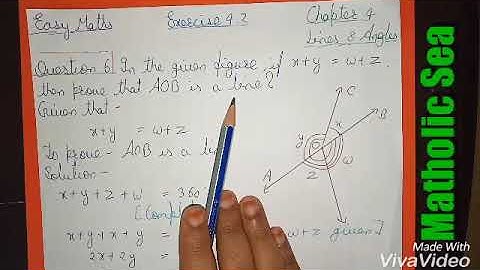 Easy Maths Exercise 4.2 Chapter 4
Lines & Angles
Question 6) In the given figure, if x+y = w+z.
then prove that AOB is a line?
Given that -
x+y = w+z
To prove - AOB is a
Solution -
x+y+z+w = 360
[Comp
x+y+x+y = w+z given]
2x+2y =
C
B
x
y
O
w
z
A
Matholic Sea
Made With
VivaVideo